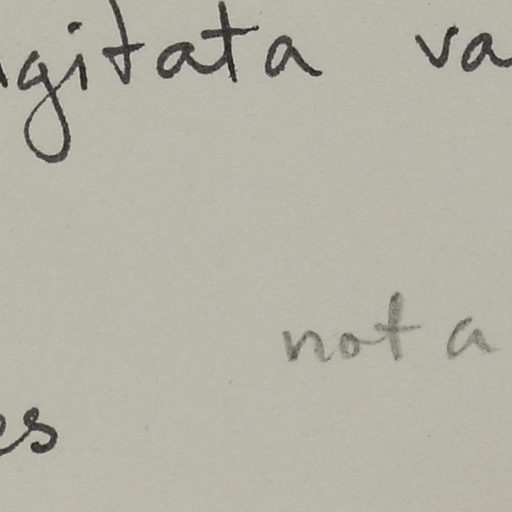 gitata va
not a
es